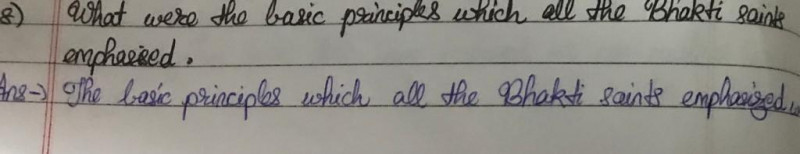 8) What were the basic principles which all the Bhakti saints
emphasized.
Ans-> The basic principles which all the Bhakti saints emphasized